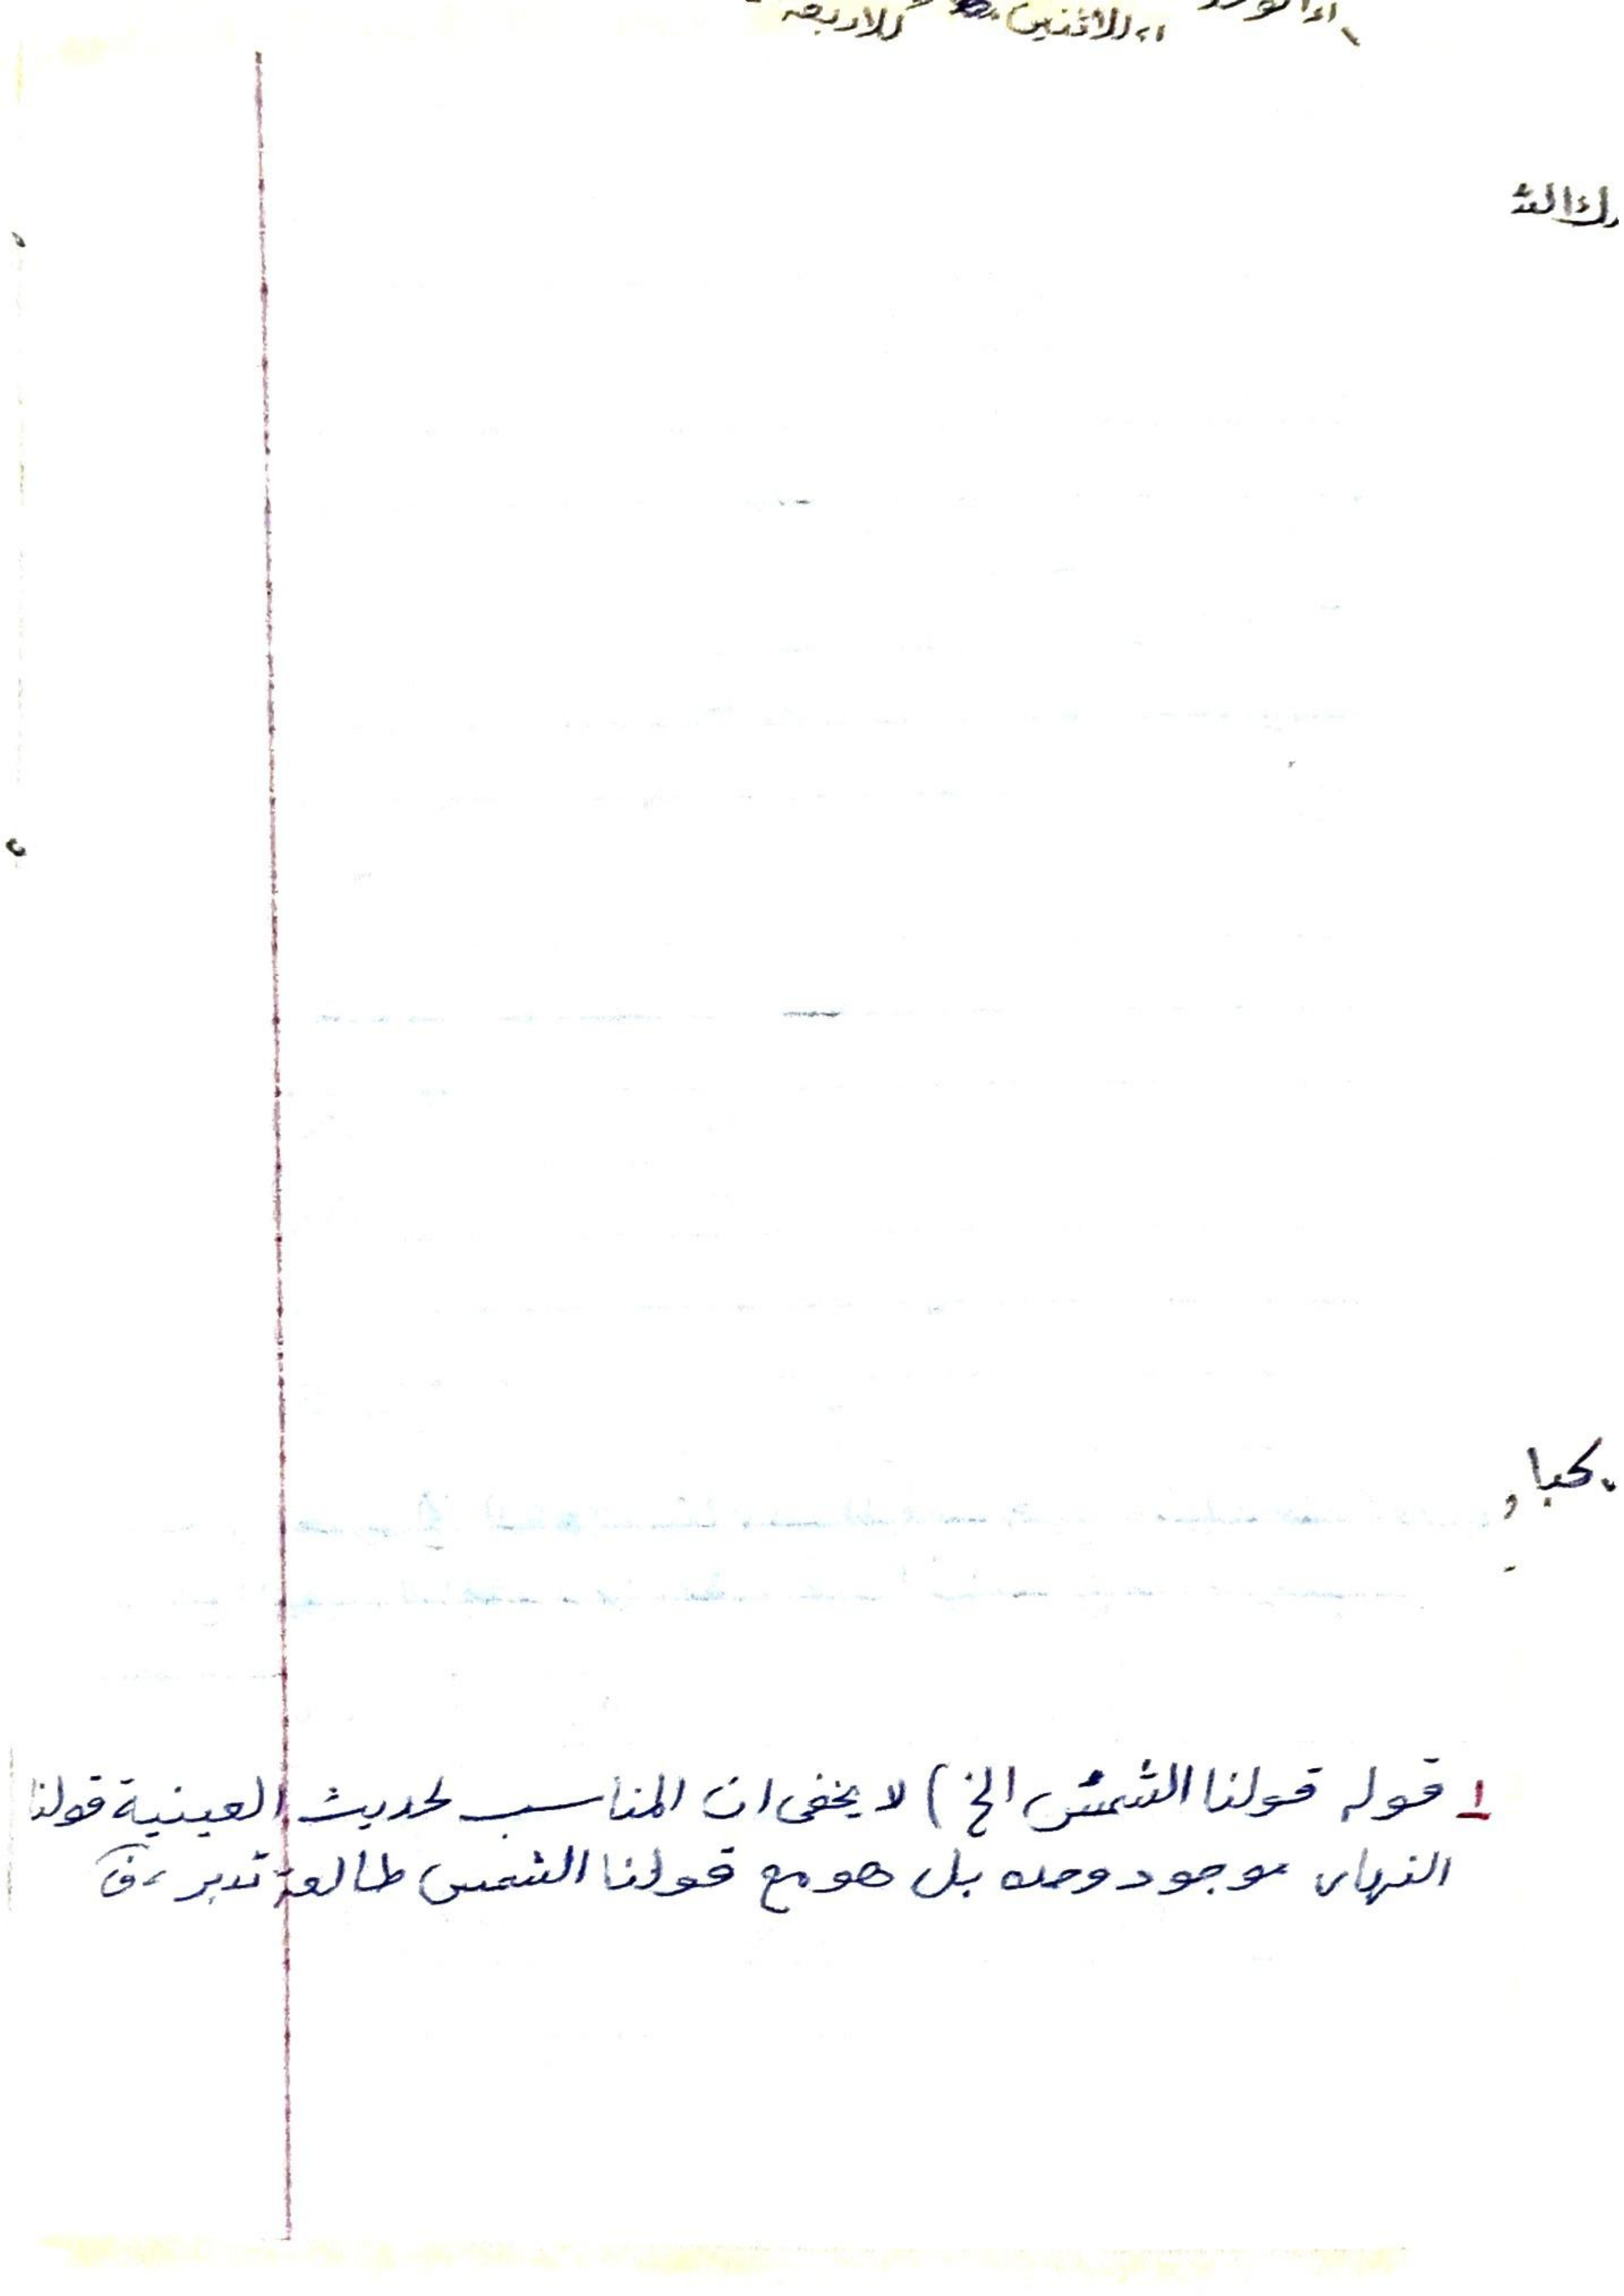 للاثنين للاربعة
١ قوله قولنا الشمس الخ) لا يخفى ان المناسب لحديث العينية قولنا
النهار موجود وحده بل هو مع قولنا الشمس طالعة تدبر